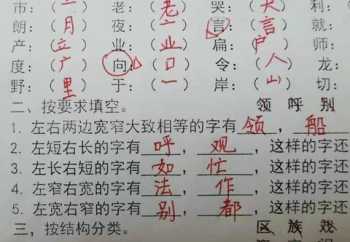 市：（ 一 ） 老：（ 老 ） 哭：（ 犬 ） 利：（
朗：（ 月 ） 夜：（ 亠 ） 言：（ 言 ） 就：（
产：（ 立 ） 业：（ 业 ） 扁：（ 户 ） 师：（
度：（ 广 ） 向：（ 口 ） 令：（ 人 ） 龙：
野：（ 里 ） 于：（ 一 ） 岸：（ 山 ） 切：（
二、按要求填空。 领 呼 别
1. 左右两边宽窄大致相等的字有 领 ， 船
2. 左短右长的字有 呼 ， 观 ，这样的字还
3. 左长右短的字有 如 ， 忙 ，这样的字还
4. 左窄右宽的字有 法 ， 作 ，这样的字还
5. 左宽右窄的字有 别 ， 都 ，这样的字还
三，按结构分类。 区 族 戏